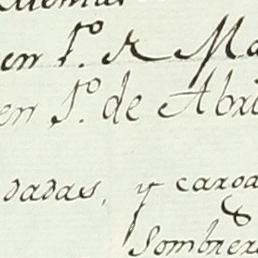 en 1.º de Ma
en 1.º de Abri
dadas, y carga
Sombrer